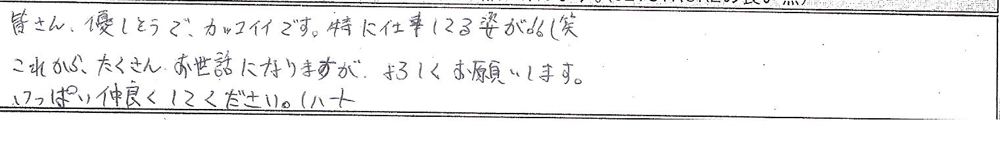 皆さん、優しそうで、カッコイイです。特に仕事してる姿が㏂(笑
これから、たくさんお世話になりますが、よろしくお願いします。
いっぱい仲良くしてください。(ハート